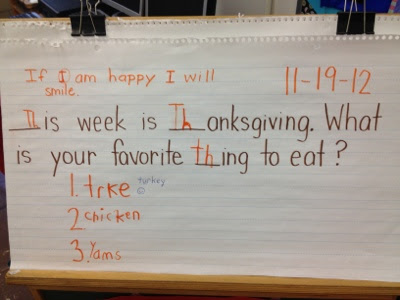 If I am happy I will 11-19-12
smile.
This week is Thanksgiving. What
is your favorite thing to eat?
1. trke turkey ☺
2 chicken
3. Yams